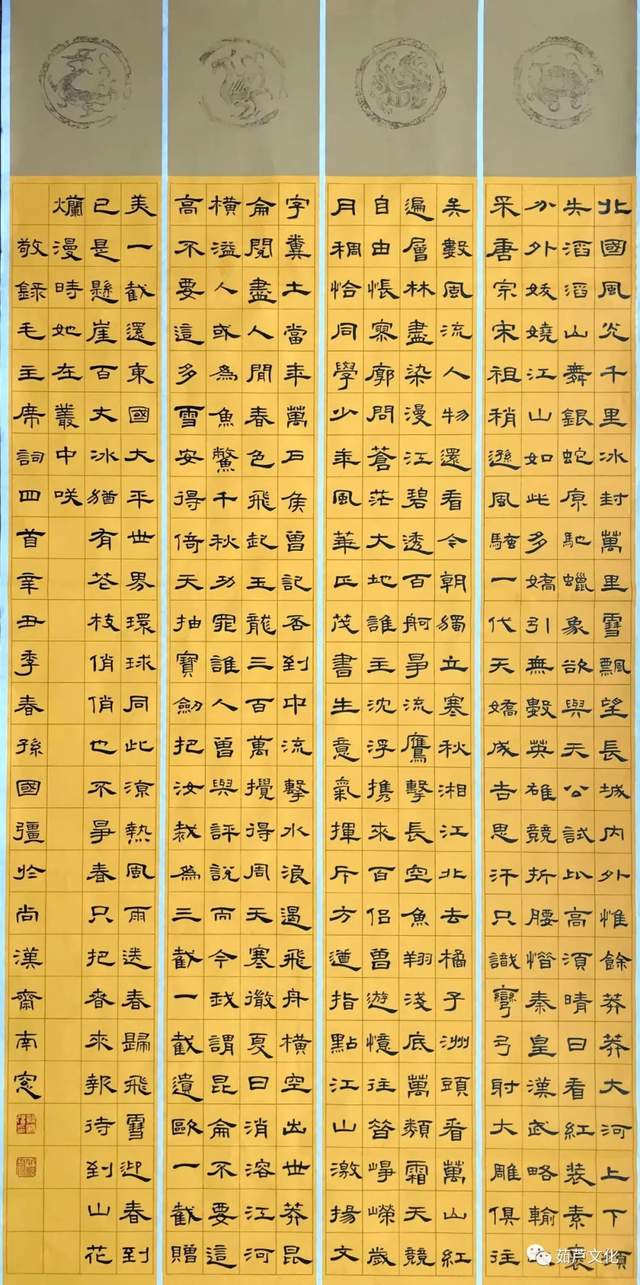 北國風光千里冰封萬里雪飄望長城內外惟餘莽莽大河上下頓
失滔滔山舞銀蛇原馳蠟象欲與天公試比高須晴日看紅裝素裹
分外妖嬈江山如此多嬌引無數英雄競折腰惜秦皇漢武略輸
采唐宗宋祖稍遜風騷一代天嬌成吉思汗只識彎弓射大雕俱往
矣數風流人物還看今朝獨立寒秋湘江北去橘子洲頭看萬山紅
遍層林盡染漫江碧透百舸爭流鷹擊長空魚翔淺底萬類霜天競
自由悵寥廓問蒼茫大地誰主沈浮携來百侶曾遊憶往昔崢嶸歲
月稠恰同學少年風華正茂書生意氣揮斥方遒指點江山激揚文
字糞土當年萬戶侯曾記否到中流擊水浪遏飛舟橫空出世莽昆
侖閱盡人間春色飛起玉龍三百萬攪得周天寒徹夏日消溶江河
橫溢人或為魚鱉千秋功罪誰人曾與評說而今我謂昆侖不要這
高不要這多雪安得倚天抽寶劍把汝裁為三截一截遺歐一截贈
美一截還東國大平世界環球同此涼熱風雨送春歸飛雪迎春到
已是懸崖百丈冰猶有花枝俏俏也不爭春只把春來報待到山花
爛漫時她在叢中咲
敬錄毛主席詞四首辛丑季春孫國彊於尚漢齋南窗
茹芦文化